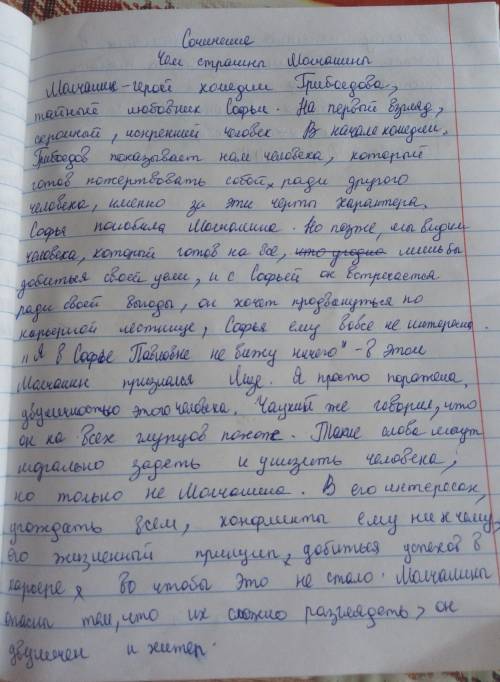 Сочинение
Чем страшны Молчалины
Молчалин-герой комедии Грибоедова,
тайный любовник Софьи. На первый взгляд,
скромный, искренний человек В начале комедии,
Грибоедов показывает нам человека, который
готов пожертвовать собой, ради другого
человека, именно за эти черты характера,
Софья полюбила Молчалина. Но позже, мы видим
человека, который готов на всё, что угодно лишь бы
добиться своей цели, и с Софьей он встречается
ради своей выгоды, он хочет продвинуться по
карьерной лестнице, Софья ему вовсе не интересна.
"Я в Софье Павловне не вижу ничего"-в этом
Молчалин признался Лизе. Я просто поражена,
двуличностью этого человека. Чацкий же говорил, что
он на всех глупцов похож. Такие слова могут
морально задеть и унизить человека,
но только не Молчалина. В его интересах,
угождать всем, конфликты ему ни к чему,
его жизненный принцип, добиться успехов в
карьере, во чтобы это не стало. Молчалины
опасны тем, что их сложно разглядеть, он
двуличен и хитер.